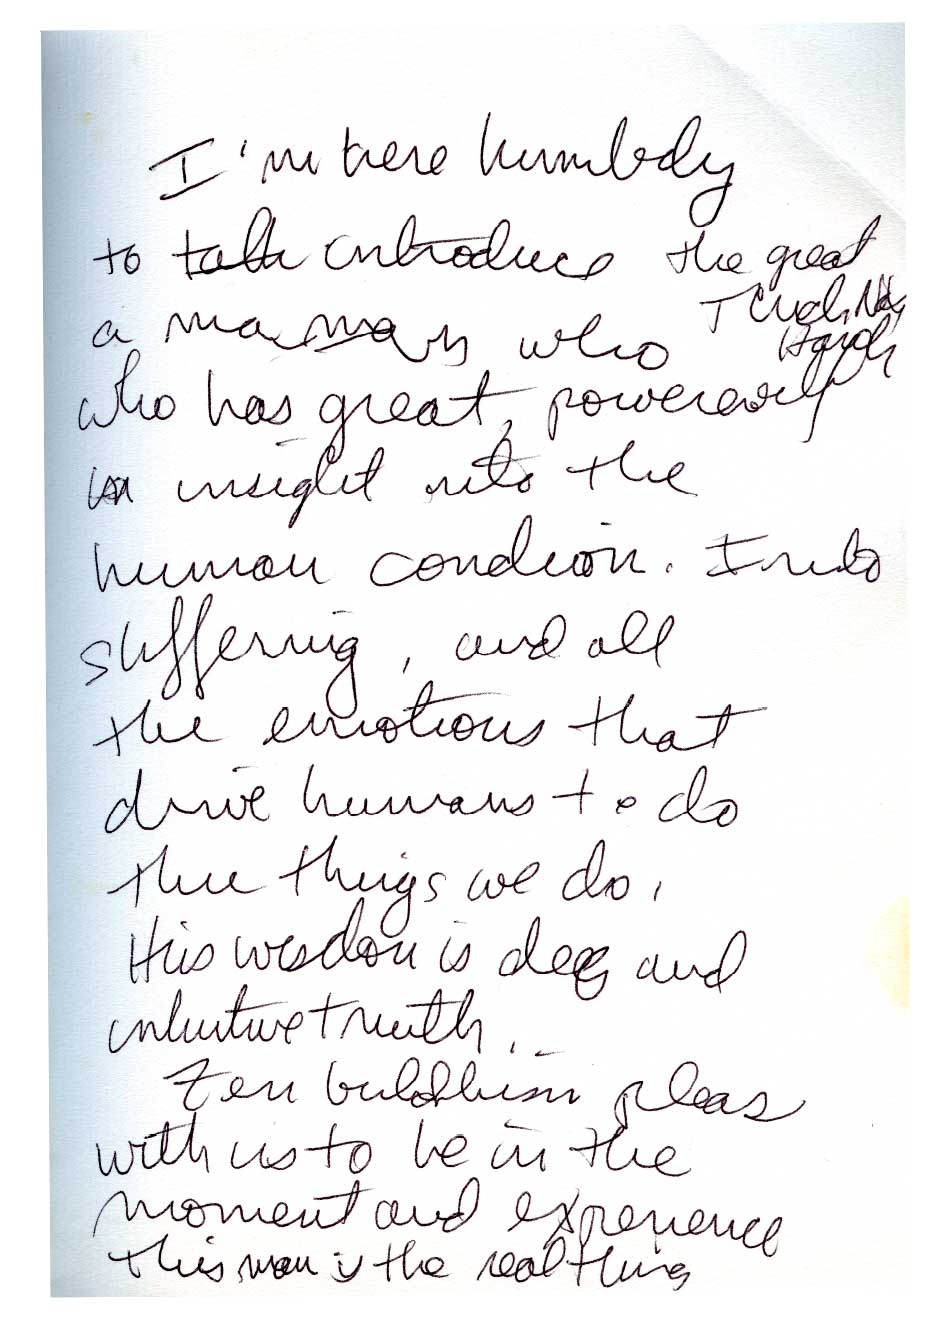 I'm here humbly
to talk introduce the great
a man who Thich Nat
Hanh
who has great, powerful
in insight into the
human condition. Into
suffering, and all
the emotions that
drive humans to do
the things we do,
His wisdom is deep and
intuitive truth,
Zen buddhism pleas
with us to be in the
moment and experience
this man is the real thing